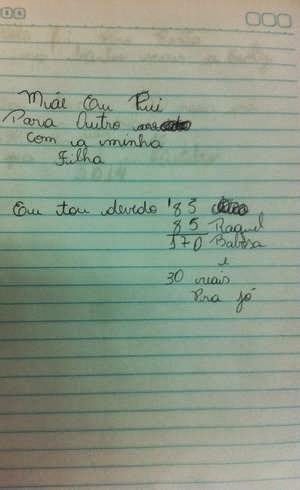 Miãe Eu Fui
Para Outro
com a minha
Filha
Eu tou devedo 85
85 Raquel
170 Babosa
e
30 reais
Pra Jó